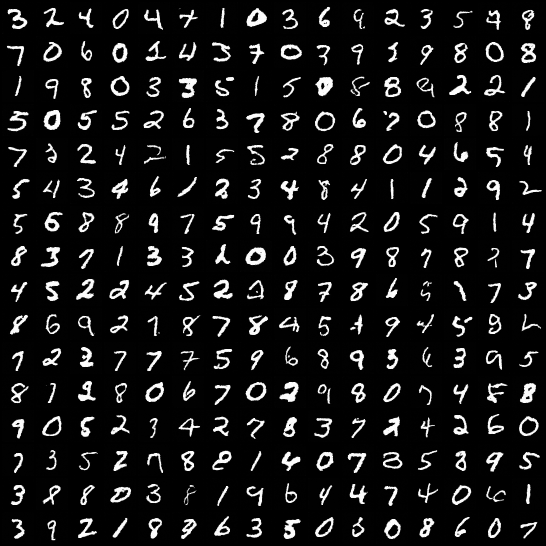 3 2 4 0 4 7 1 0 3 6 9 2 3 5 7 8
7 0 6 0 2 4 3 7 0 3 9 1 9 8 0 8
1 9 8 0 3 3 5 1 5 0 8 8 9 2 2 1
5 0 5 5 2 6 3 7 8 0 6 7 0 8 8 1
7 2 2 4 2 1 5 5 2 8 8 0 4 6 5 9
5 4 3 4 6 1 2 3 4 8 4 1 1 2 9 2
5 6 8 8 9 7 5 9 9 4 2 0 5 9 1 4
8 3 7 1 3 3 2 0 0 3 9 8 7 8 7
4 5 2 2 4 5 2 8 7 8 6 1 7 3
8 6 9 2 1 8 7 8 4 5 1 9 4 5 9
7 2 2 7 7 7 5 9 6 8 9 3 6 3 9 5
8 1 2 8 0 6 7 0 2 9 8 0 7 4 8 8
9 0 5 2 3 4 2 7 8 3 7 2 4 2 6 0
7 3 5 2 7 8 2 1 6 0 7 3 5 8 9 5
3 8 8 0 3 8 1 9 6 4 4 7 4 0 6 1
3 9 2 1 8 9 6 3 5 0 0 8 6 0 7